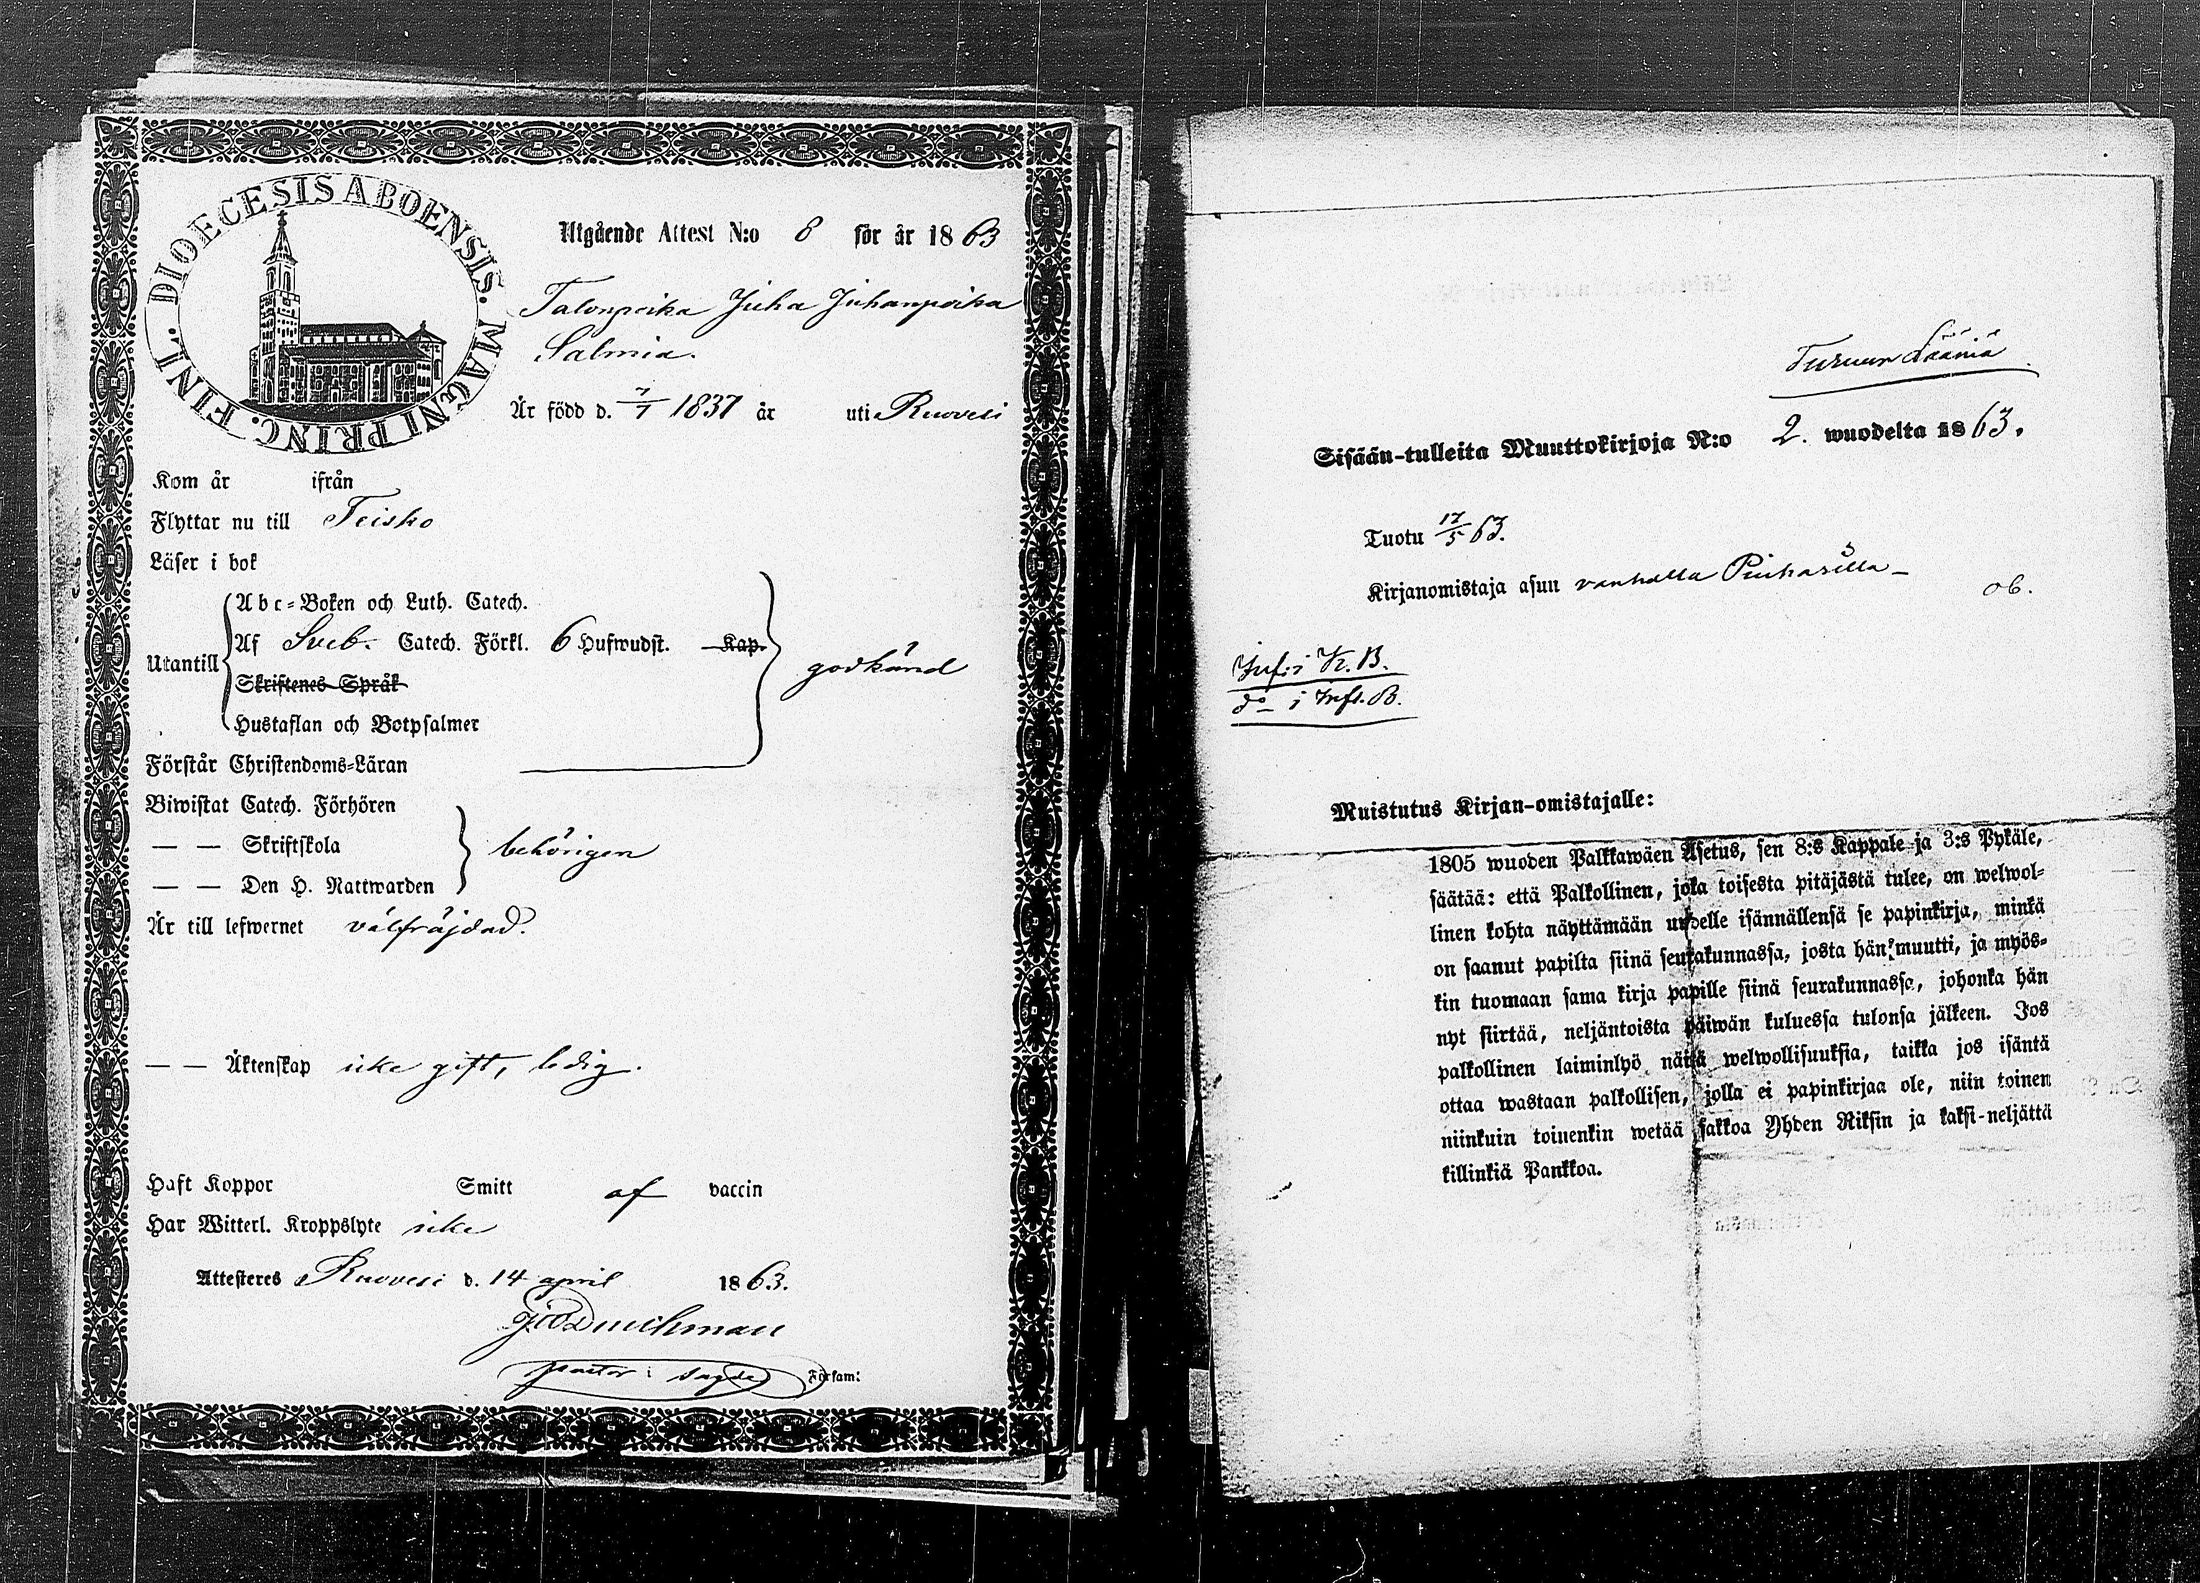 DIOECESIS ABOENSIS. MAGNI PRINC. FINL.
Utgående Attest N:o 8 för år 1863
Talonpoika Juha Juhanpoika
Salmia.
Är född d. 7/1 1837 år uti Ruovesi
Kom år ifrån
Flyttar nu till Teisko
Läser i bok
Utantill
Abc-Boken och Luth. Catech.
Af Sveb. Catech. Förkl. 6 Hufwudst. Kap.
Skriftenes Språk
Hustaflan och Botpsalmer
godkänd
Förstår Christendoms-Läran
Biwistat Catech. Förhören
— — Skriftskola
— — Den H. Nattwarden
behörigen
Är till lefwernet välfräjdad.
— — Äktenskap icke gift, ledig.
Haft Koppor Smitt af vaccin
Har Witterl. Kroppslyte icke
Attesteres Ruovesi d. 14 april 1863.
Duchman
Förkam:
Turun Lääniä
Sisään-tulleita Muuttokirjoja N:o 2. wuodelta 1863.
Tuotu 17/5 63.
Kirjanomistaja asun vanhalla
ob.
Inf. i K. B.
do i Infl. B.
Muistutus Kirjan-omistajalle:
1805 wuoden Palkkawäen Asetus, sen 8:s Kappale ja 3:s Pykäle,
säätää: että Palkollinen, joka toisesta pitäjästä tulee, on welwol-
linen kohta näyttämään uudelle isännällensä se papinkirja, minkä
on saanut papilta siinä seurakunnassa, josta hän muutti, ja myös-
kin tuomaan sama kirja papille siinä seurakunnassa, johonka hän
nyt siirtää, neljäntoista päiwän kuluessa tulonsa jälkeen. Jos
palkollinen laiminlyö näitä welwollisuuksia, taikka jos isäntä
ottaa wastaan palkollisen, jolla ei papinkirjaa ole, niin toinen
niinkuin toinenkin wetää sakkoa Yhden Riksin ja kaksi-neljättä
killinkiä Pankkoa.